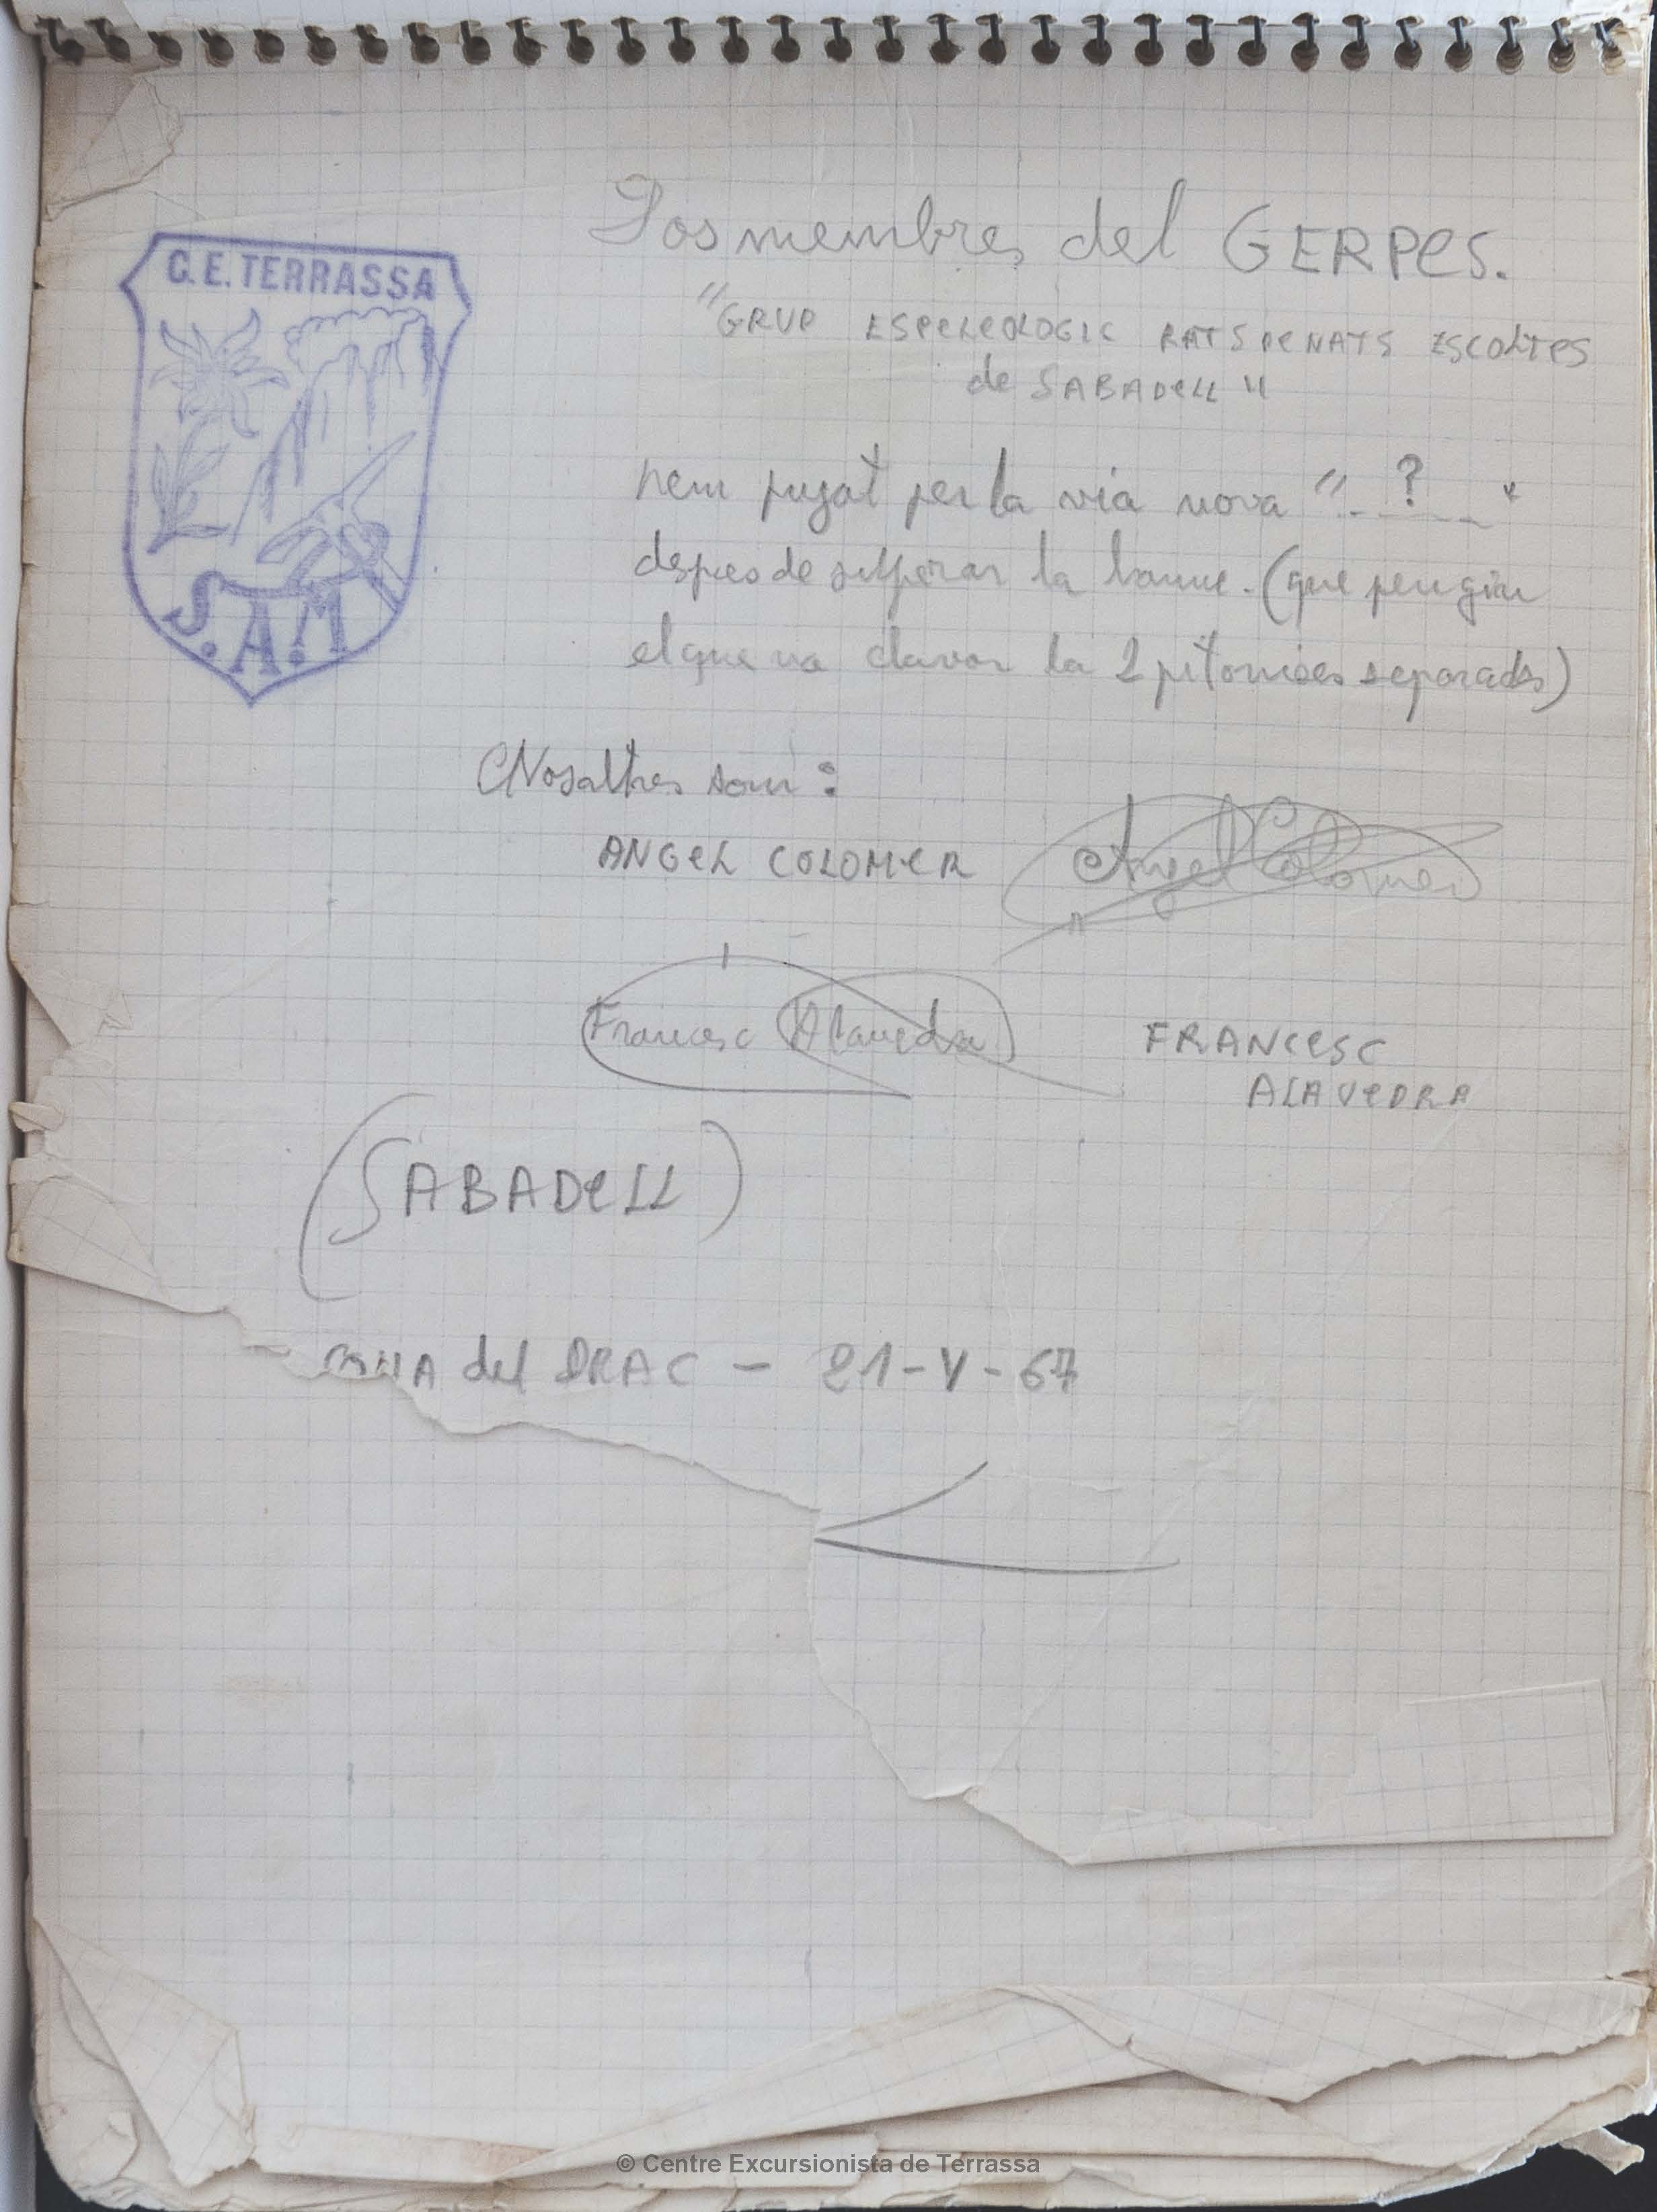 C. E. TERRASSA
S.A.M
Dos membres del GERPES.
"GRUP ESPELEOLOGIC RATS PENATS ESCOLTES
de SABADELL"
hem pujat per la via nova "_ ? _"
despres de superar la baume. (que pengin
el que va clavar la 2 pitonises separades)
Nosaltres som:
ANGEL COLOMER Angel Colomer
Francesc Alavedra FRANCESC
ALAVEDRA
(SABADELL)
del DRAC - 21-V-67
© Centre Excursionista de Terrassa